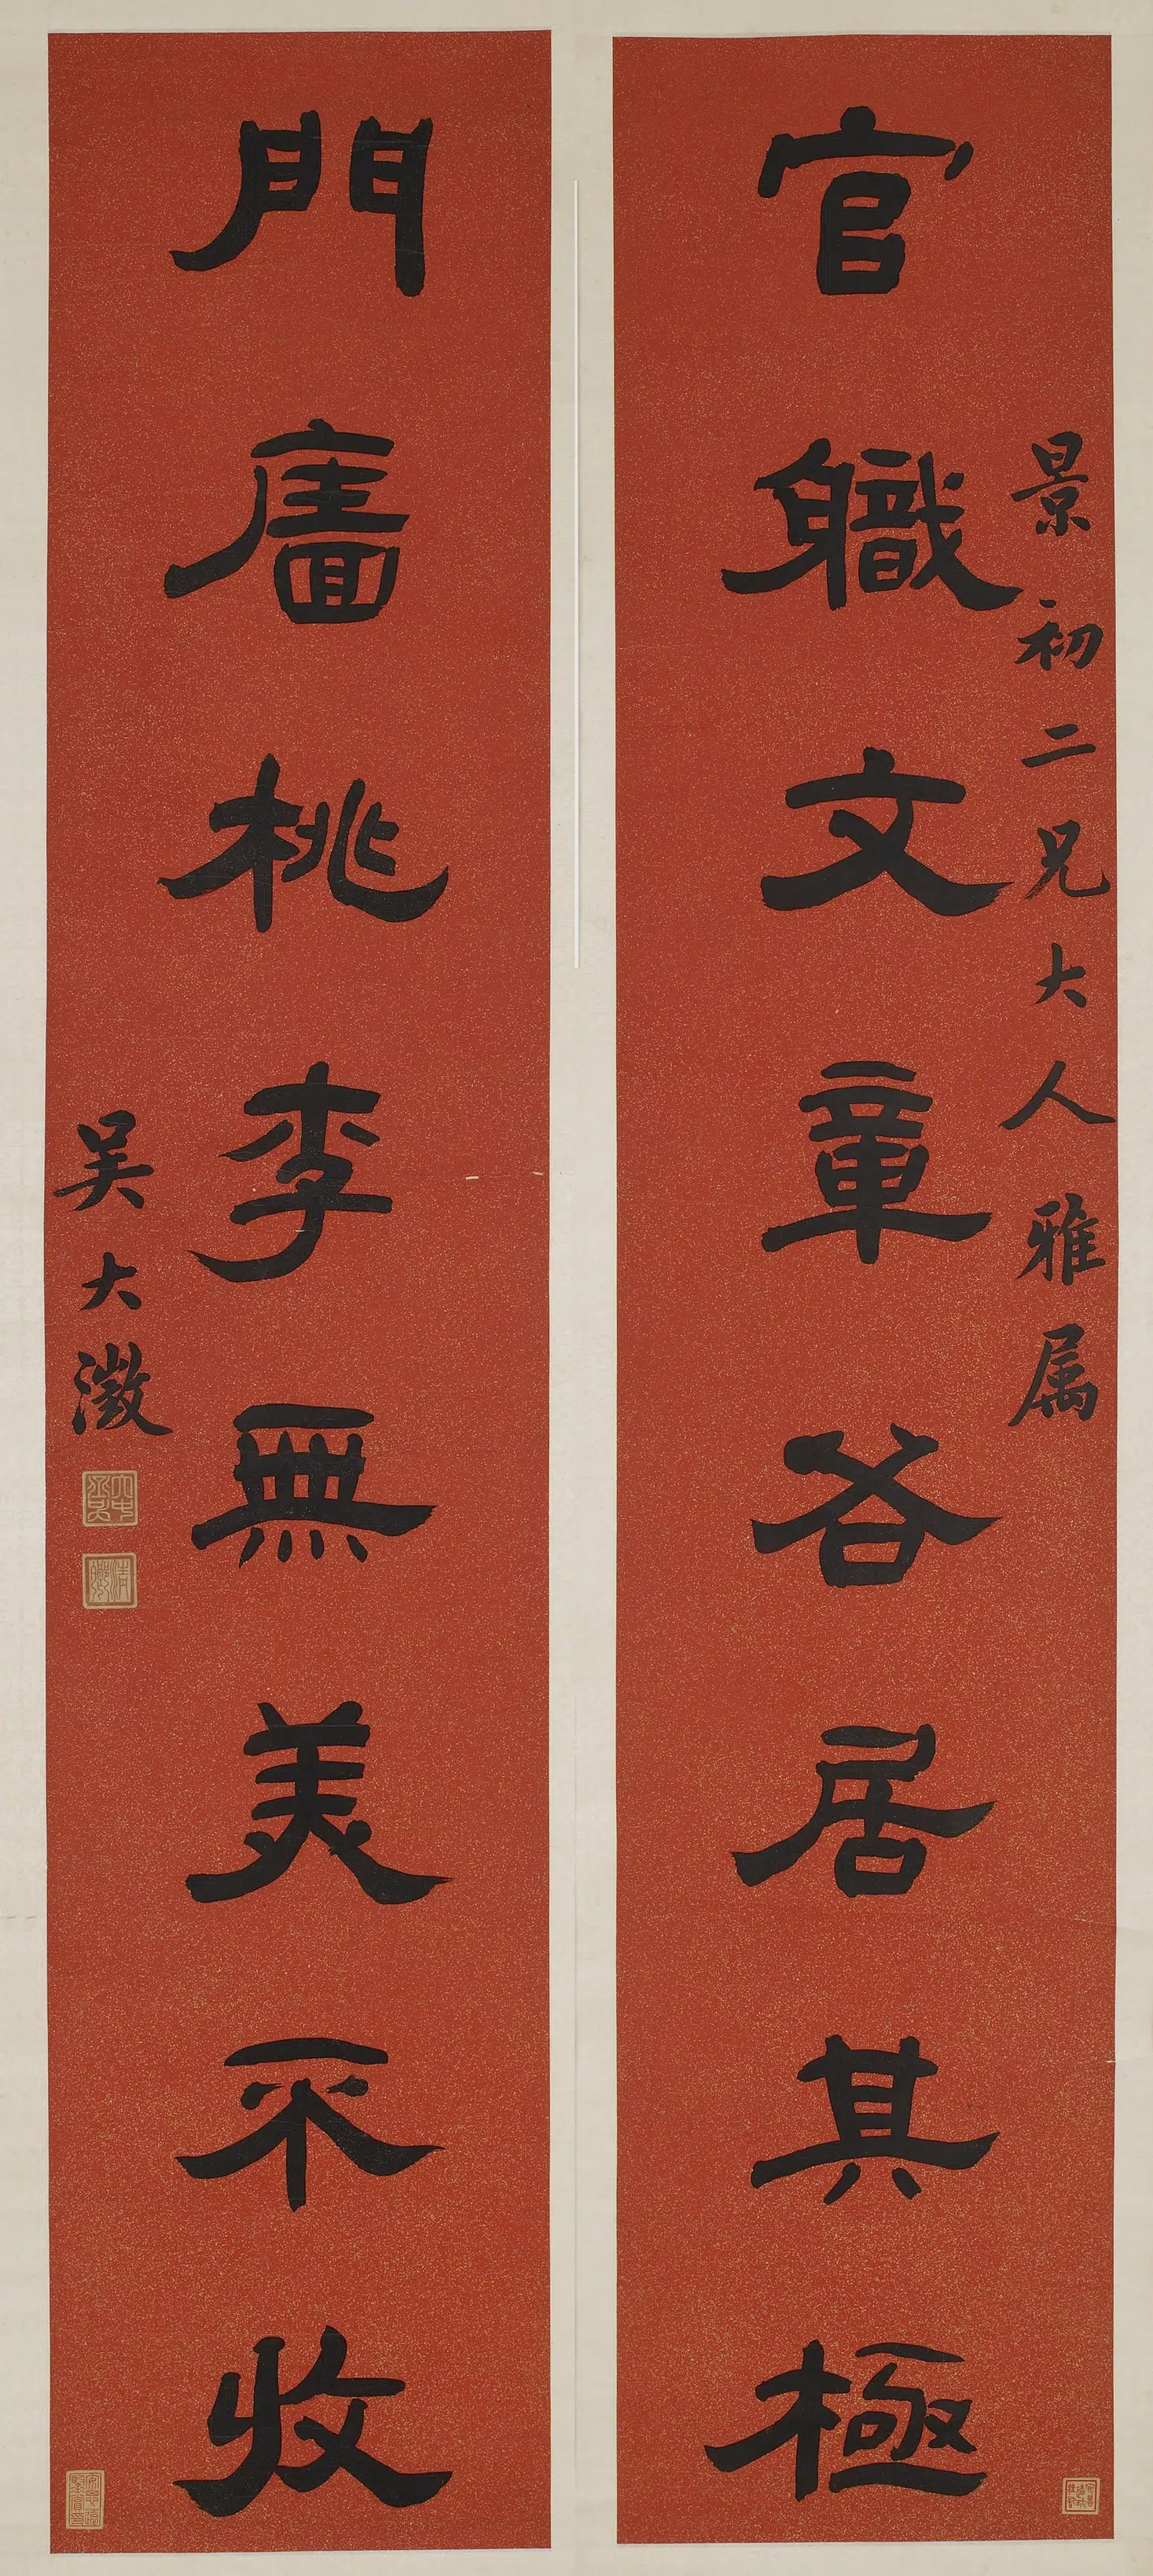 景初二兄大人雅属
官職文章各居其極
門廧桃李無美不收
吳大澂